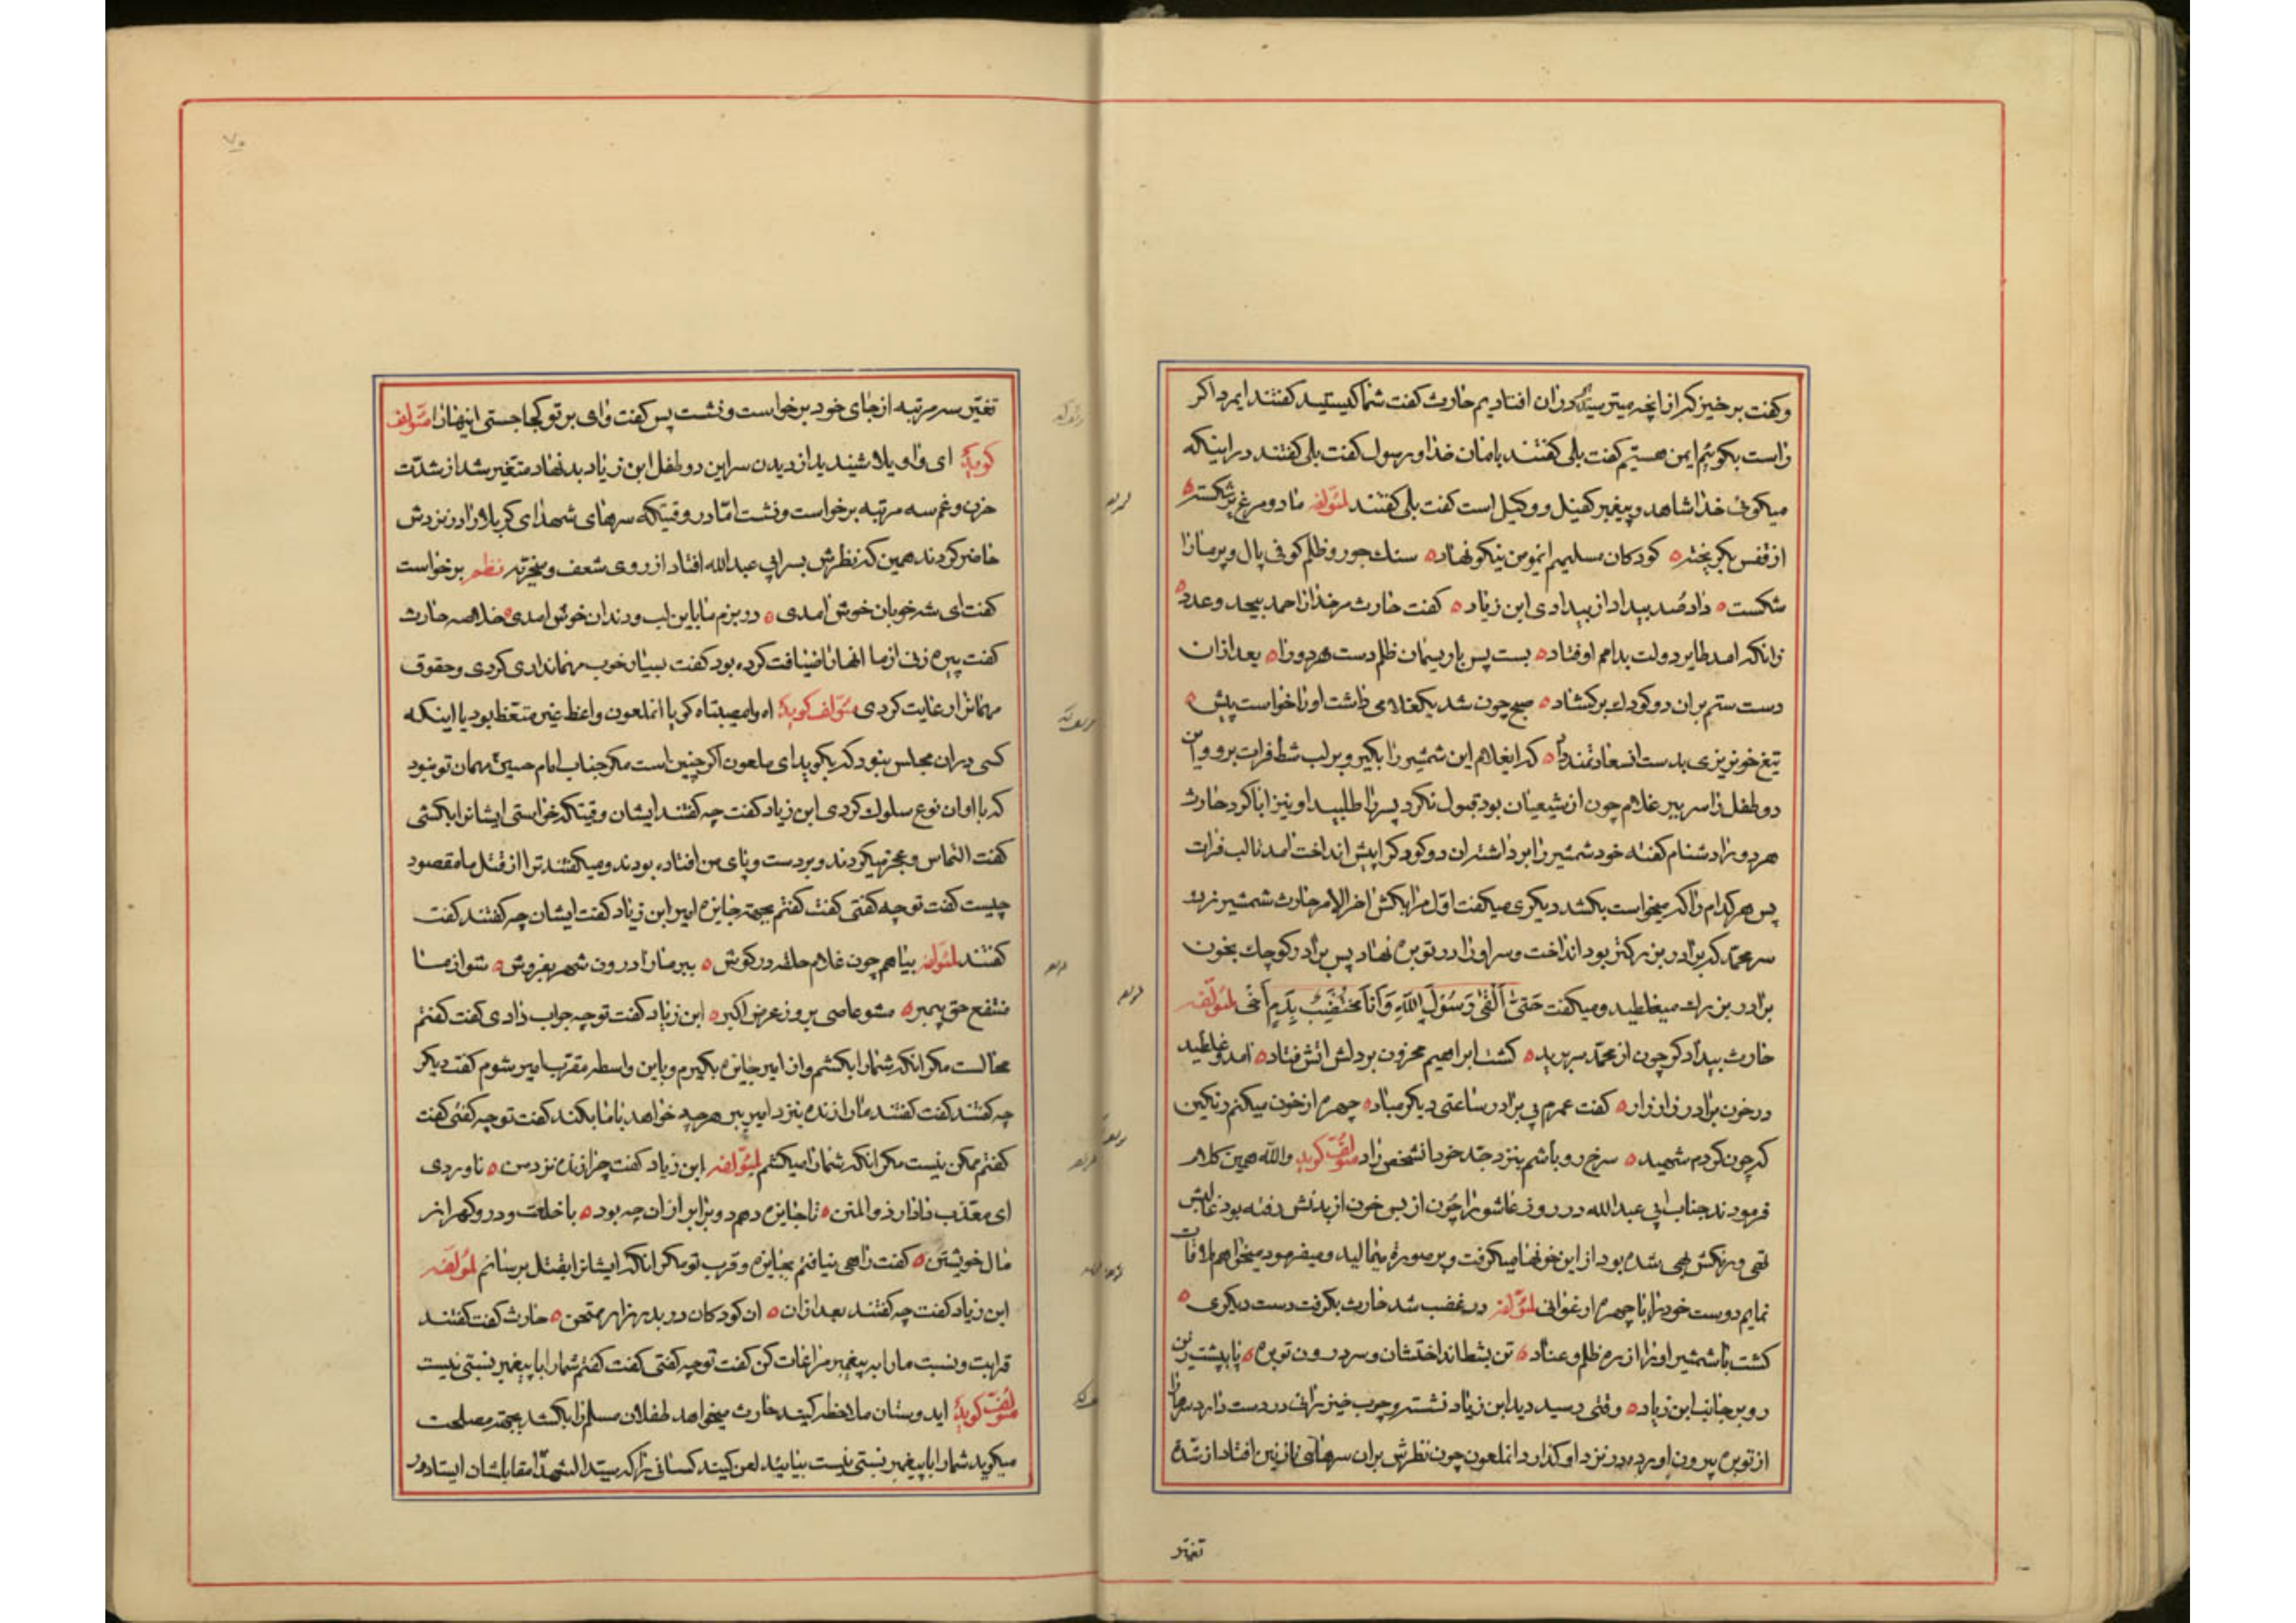 وکفت برخیز که از انچه میترسیدیم دران افتادیم حارث کفت شما کیستید کفتند ایمرد اکر
راست بکوئیم ایمن هستیم کفت بلی کفتند بامان خدا و رسول کفت بلی کفتند در اینکه
میکوئی خدا شاهد و پیغمبر کفیل و وکیل است کفت بلی کفتند لمؤلفه ما دو مرغ پرشکسته
از قفس بکریخته کودکان مسلمیم ایمؤمن نیکو نهاد سنك جور و ظلم کوفی بال و پر ما را
شکست داد صد بیداد از بیدادی ابن زیاد کفت حارث مر خدا را حمد بیحد و عدد
زانکه امد طایر دولت بدامم اوفتاد بست پس با ریسمان ظلم دست هر دو را بعد ازان
دست ستم بران دو کودك برکشاد صبح چون شد یکغلامی داشت او را خواست پیش
تیغ خونریزی بدست انسعادتمند داد که ایغلام این شمشیر را بکیر و بر لب شط فرات برو و این
دو طفل را سر ببر غلام چون از شیعیان بود قبول نکرد پسر را طلبید او نیز ابا کرد حارث
هر دو را دشنام کفته خود شمشیر را برداشته ان دو کودك را پیش انداخت امد تا لب فرات
پس هر کدام را که میخواست بکشد دیکری میکفت اول مرا بکش اخر الامر حارث شمشیر زد
سر محمد که برادر بزرکتر بود انداخت و سر او را در توبره نهاد پس برادر کوچك بخون
برادر بزرك میغلطید و میکفت حَتّی اَلْقی رَسُولَ اللّهِ وَ اَنَا مُخْتَضِبٌ بِدَمِ اَخی لمؤلفه
حارث بیدادکر چون از محمد سر برید کشت ابراهیم محزون بر دلش اتش فتاد امد و غلطید
در خون برادر زار زار کفت عمرم بی برادر ساعتی دیکر مباد چهره از خون میکنم رنکین
که چون کردم شهید سرخ رو باشم بنزد جد خود انشخص راد مؤلف کوید والله همین کلام
فرمودند جناب ابی عبدالله در روز عاشورا چون از بس خون از بدنش رفته بود
تهی و رنکش بهی شده بود از این خونها میکرفت و بر صورة میمالید و میفرمود میخواهم ملاقات
نمایم دوست خود را با چهره ارغوانی لمؤلفه در غضب شد حارث بکرفت دست دیکری
کشت با شمشیر او را از ره ظلم و عناد تن بشط انداختشان و سر درون توبره پا بپشت زین
رو بر جانب ابن زیاد وقتی رسید دید ابن زیاد نشسته و چوب خیزرانی در دست دارد سرها را
از توبره بیرون اورده در نزد او کذارد انملعون چون نظرش بران سرهای نازنین افتاد از شدة
تغیر
۷۰
تغیر سه مرتبه از جای خود برخواست و نشست پس کفت وای بر تو کجا جستی اینها را مؤلف
کوید ای واویلا شنیدید از دیدن سر این دو طفل ابن زیاد بد نهاد متغیر شد از شدت
حزن و غم سه مرتبه برخواست و نشست اما در وقتیکه سرهای شهدای کربلا را در نزدش
حاضر کردند همین که نظرش بسر ابی عبدالله افتاد از روی شعف و سخریه نظم برخواست
کفت ای شه خوبان خوش امدی در بزم ما باین لب و دندان خوش امدی خلاصه حارث
کفت پیره زنی از ما انها را ضیافت کرده بود کفت بسیار خوب مهمانداری کردی و حقوق
مهمانرا رعایت کردی مؤلف کوید اه وامصیبتاه کویا انملعون واعظ غیر متعظ بود یا اینکه
کسی دران مجلس نبود که بکوید ای ملعون اکر چنین است مکر جناب امام حسین مهمان تو نبود
که با او ان نوع سلوك کردی ابن زیاد کفت چه کفتند ایشان وقتیکه خواستی ایشانرا بکشی
کفت التماس و عجز میکردند و بر دست و پای من افتاده بودند و میکفتند ترا از قتل ما مقصود
چیست کفت تو چه کفتی کفت کفتم بجهة جایزه امیر ابن زیاد کفت ایشان چه کفتند کفت
کفتند لمؤلفه بیا هم چون غلام حلقه در کوش ببر ما را درون شهر بفروش شو از ما
منتفع حق پیمبر مشو عاصی بروز عرض اکبر ابن زیاد کفت تو چه جواب دادی کفت کفتم
محالست مکر انکه شما را بکشم و از امیر جایزه بکیرم و باین واسطه مقرب امیر شوم کفت دیکر
چه کفتند کفت کفتند ما را زنده بنزد امیر ببر هر چه خواهد با ما بکند کفت تو چه کفتی کفت
کفتم ممکن نیست مکر انکه شما را میکشم لمؤلفه ابن زیاد کفت چرا زنده نزد من ناوردی
ای معذب نادار ذوالمنن تا جایزه دهم دو برابر ازان چه بود با خلعت و در و کهر از
مال خویشتن کفت راهی نیافتم بجایزه و قرب تو مکر انکه ایشانرا بقتل برسانم لمؤلفه
ابن زیاد کفت چه کفتند بعد ازان ان کودکان دربدر زار ممتحن حارث کفت کفتند
قرابت و نسبت ما را به پیغمبر مراعات کن کفت تو چه کفتی کفت کفتم شما را با پیغمبر نسبتی نیست
مؤلف کوید ایدوستان ملاحظه کنید حارث میخواهد طفلان مسلم را بکشد بجهة مصلحت
میکوید شما را با پیغمبر نسبتی نیست بیائید لعن کنید کسانی را که سید الشهدا مقابلشان ایستاده